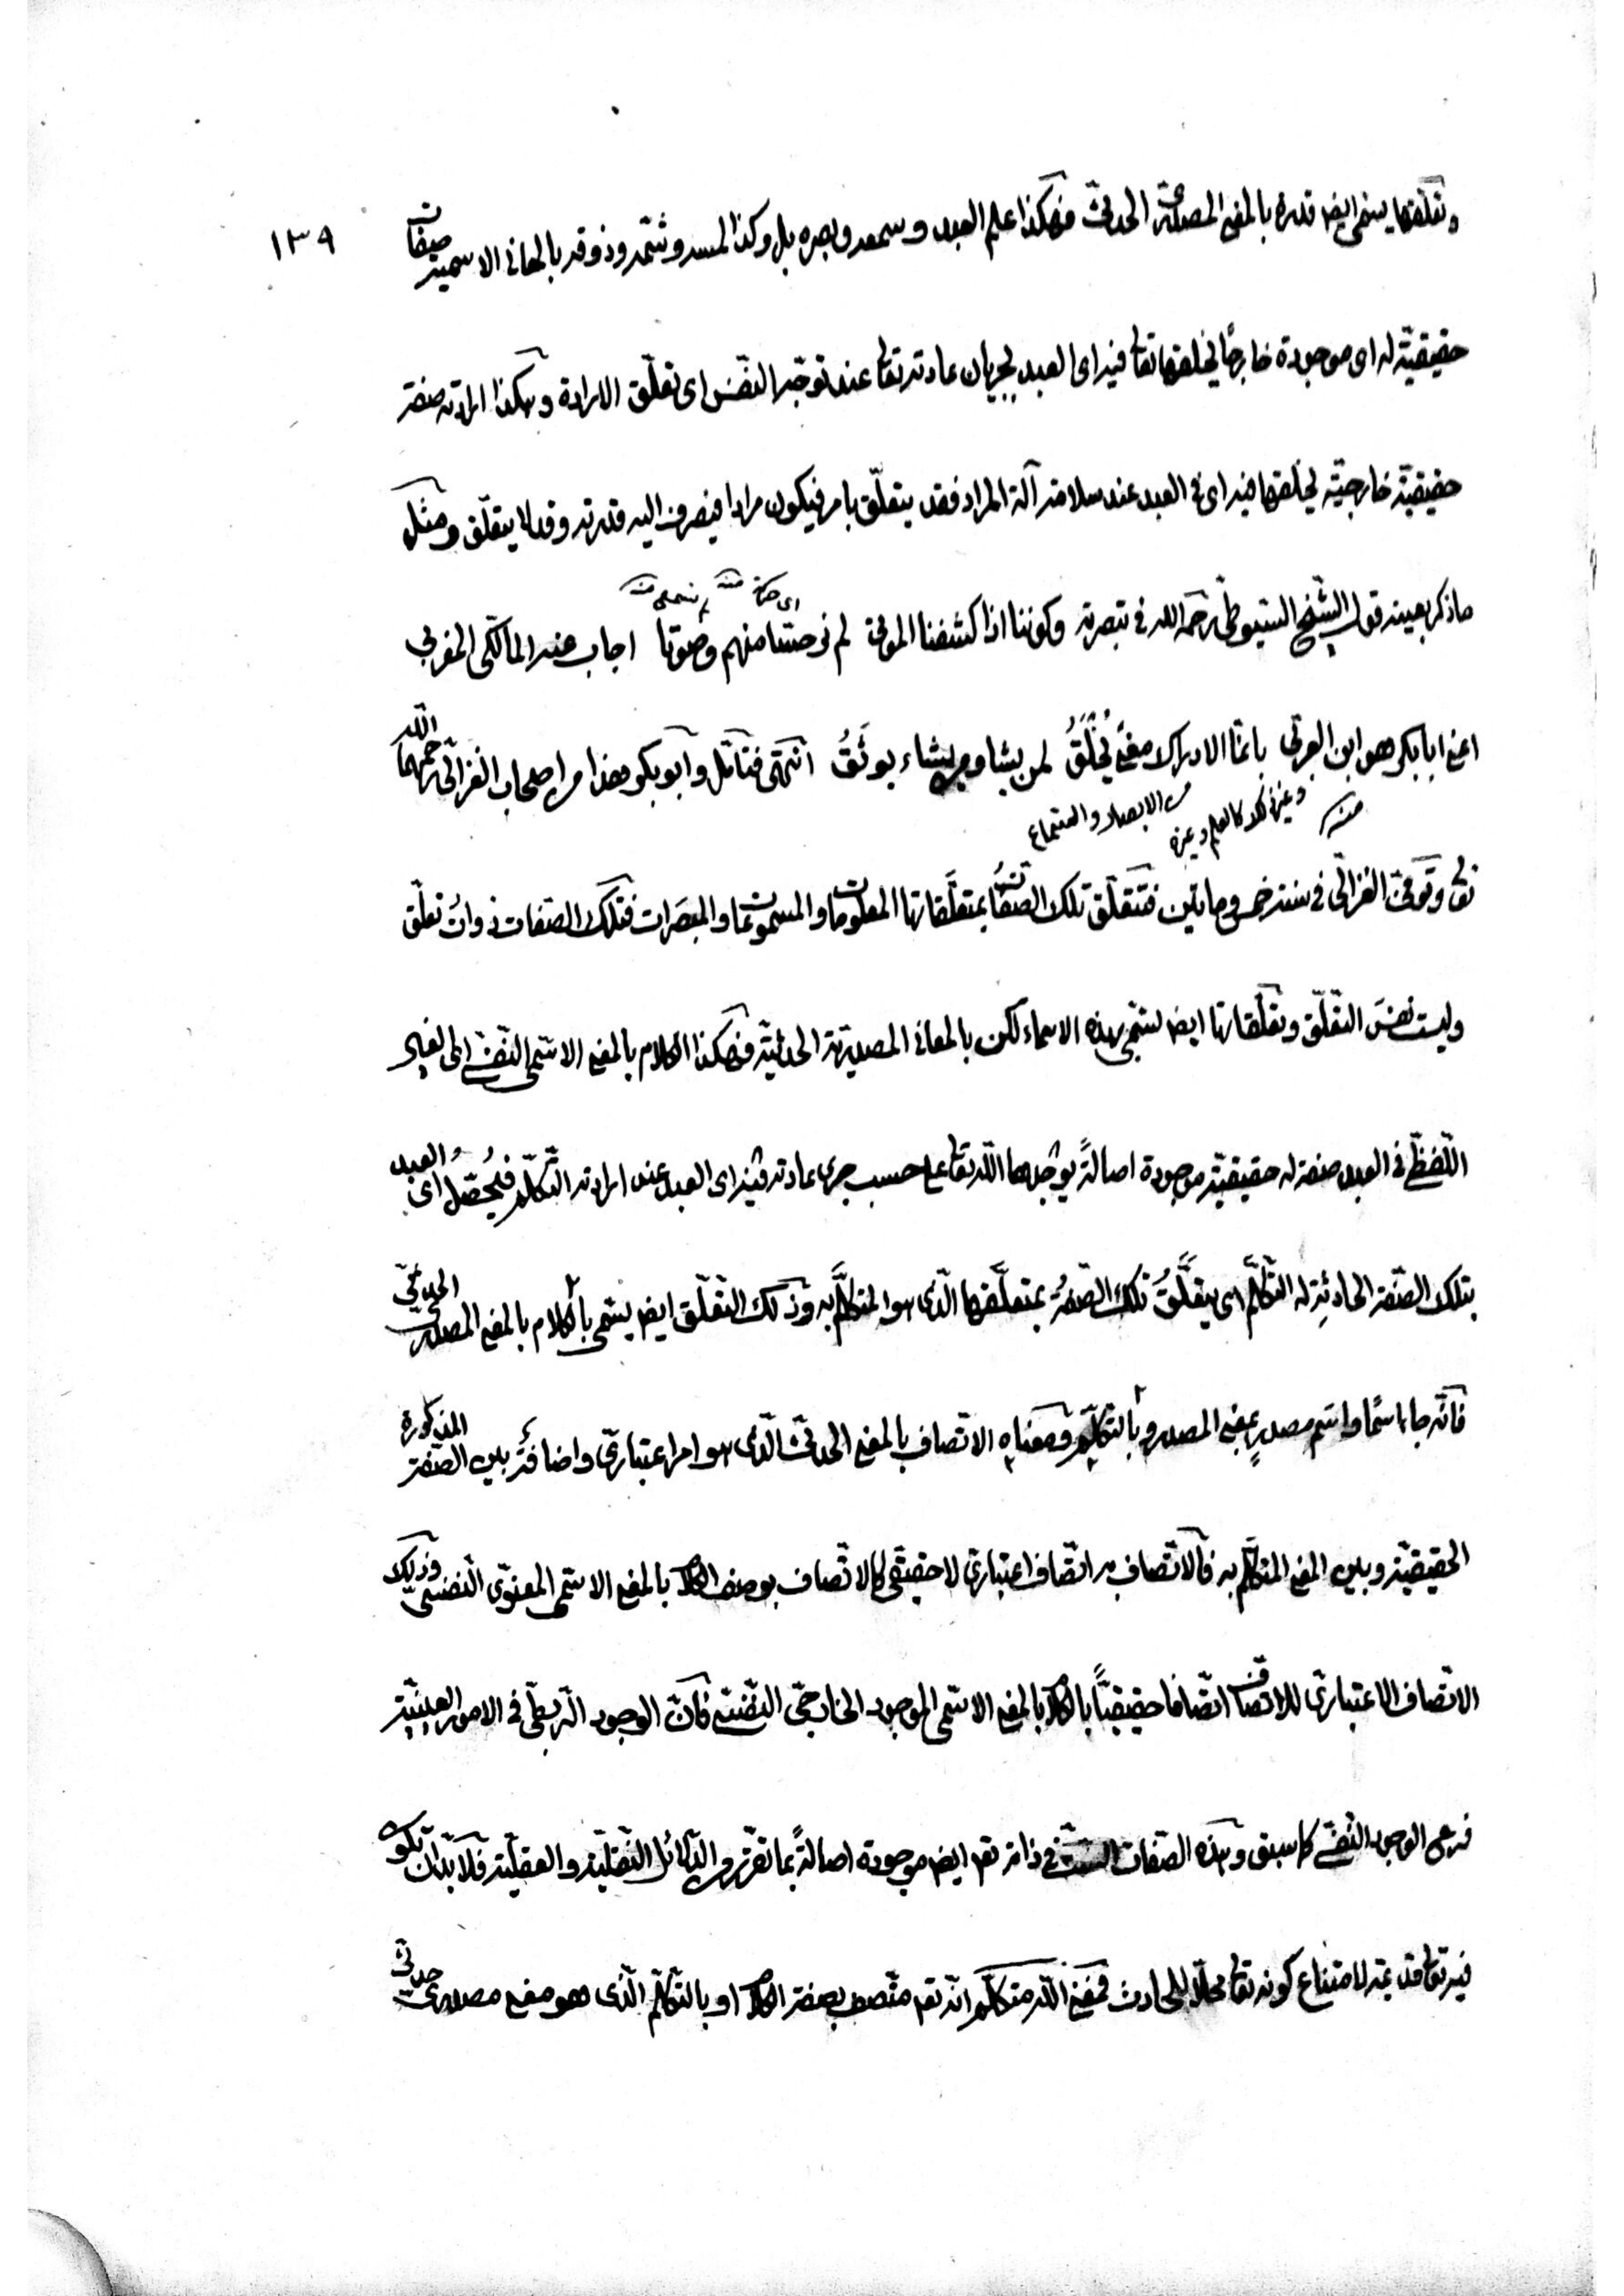 ١٣٩
وتعلّقها يسمى ايض قدرة بالمعنى المصدرىّ الحدثىّ فهكذا علم العبد وسمعه وبصره بل وكذا لمسه وشمّه وذوقه بالمعانى الاسميّة صفات
حقيقيّة له اى موجودة خارجًا يخلقها تعا فيه اى العبد لجريان عادته تعا عند توجّه النفس اى تعلّق الارادة وهكذا ارادته صفة
حقيقيّة خارجيّة يخلقها فيه اى فى العبد عند سلامة آلة المراد فقد يتعلّق بامر فيكون مرادا فيصرف اليه قدرته وقد لا يتعلّق ومثل
ما ذكر بعينه قول الشيخ السّيوطىّ رحمه الله فى تبصرته وكوننا اذا كشفنا الموتى لم نر حسّا منهم وصوتا اجاب عنه المالكىّ المغربى
اعنى ابا بكر هو ابن العربى بانّما الادراك معنىً يُخْلَقُ لمن يشا ومن يشاء يوثَقُ انتهى فتأمّل وابو بكر هذا من اصحاب الغزالىّ رحمهما الله
منه وغير ذلك كالعلم وغيره من الابصار والاستماع
تعا وتوفى الغزالىّ فى سنة خمس ومايتين فتتعلّق تلك الصّفات بمتعلَّقاتها المعلومات والمسموعات والمبصَرات فتلك الصّفات ذواتُ تعلّق
وليست نفسَ التعلّق وتعلّقاتها ايض تسمّى بهذه الاسماء لكن بالمعانى المصدريّة الحدثيّة فهكذا الكلام بالمعنى الاسمىّ النفسىّ اى الغير
اللّفظىّ فى العبد صفة له حقيقيّة موجودة اصالةً يوجدها الله تعا على حسب جرى عادته فيه اى العبد عند ارادته التكلّم فيُحصّلُ اى العبد
بتلك الصّفة الحادثةِ له التكلّمَ اى يتعلَّقُ تلك الصّفةُ بمتعلَّقها الّذى هو المتكلَّم به وذلك التعلّق ايض يسمّى بالكلام بالمعنى المصدرىّ الحدثىّ
فانّه جاء اسمًا واسم مصدرٍ بمعنى المصدر وبالتكلّم ومعناه الاتّصاف بالمعنى الحدثىّ الّذى هو امر اعتبارىّ واضافة بين الصّفة المذكورة
الحقيقيّة وبين المعنى المتكلَّم به فالاتّصاف به اتّصاف اعتبارىّ لا حقيقىّ كالاتّصاف بوصف الكلام بالمعنى الاسمىّ المعنوىّ النفسىّ وذلك
الاتصاف الاعتبارىّ للاتّصاف اتّصافا حقيقيًّا بالكلام بالمعنى الاسمىّ الموجود الخارجىّ النفسىّ فانّ الوجود الرّبطىّ فى الامور العينيّة
فرعى الوجود النفسىّ كما سبق وهذه الصّفات الستّة فى ذاته تع ايض موجودة اصالةً بما تقرّر من الدّلائل النّقليّة والعقليّة فلا بدّ ان تكون
فيه تعا قديمة لامتناع كونه تعا محلّا للحادث فمعنى الله متكلّم انّه تع متّصف بصفة الكلام او بالتكلّم الّذى هو معنى مصدرىّ حدثىّ